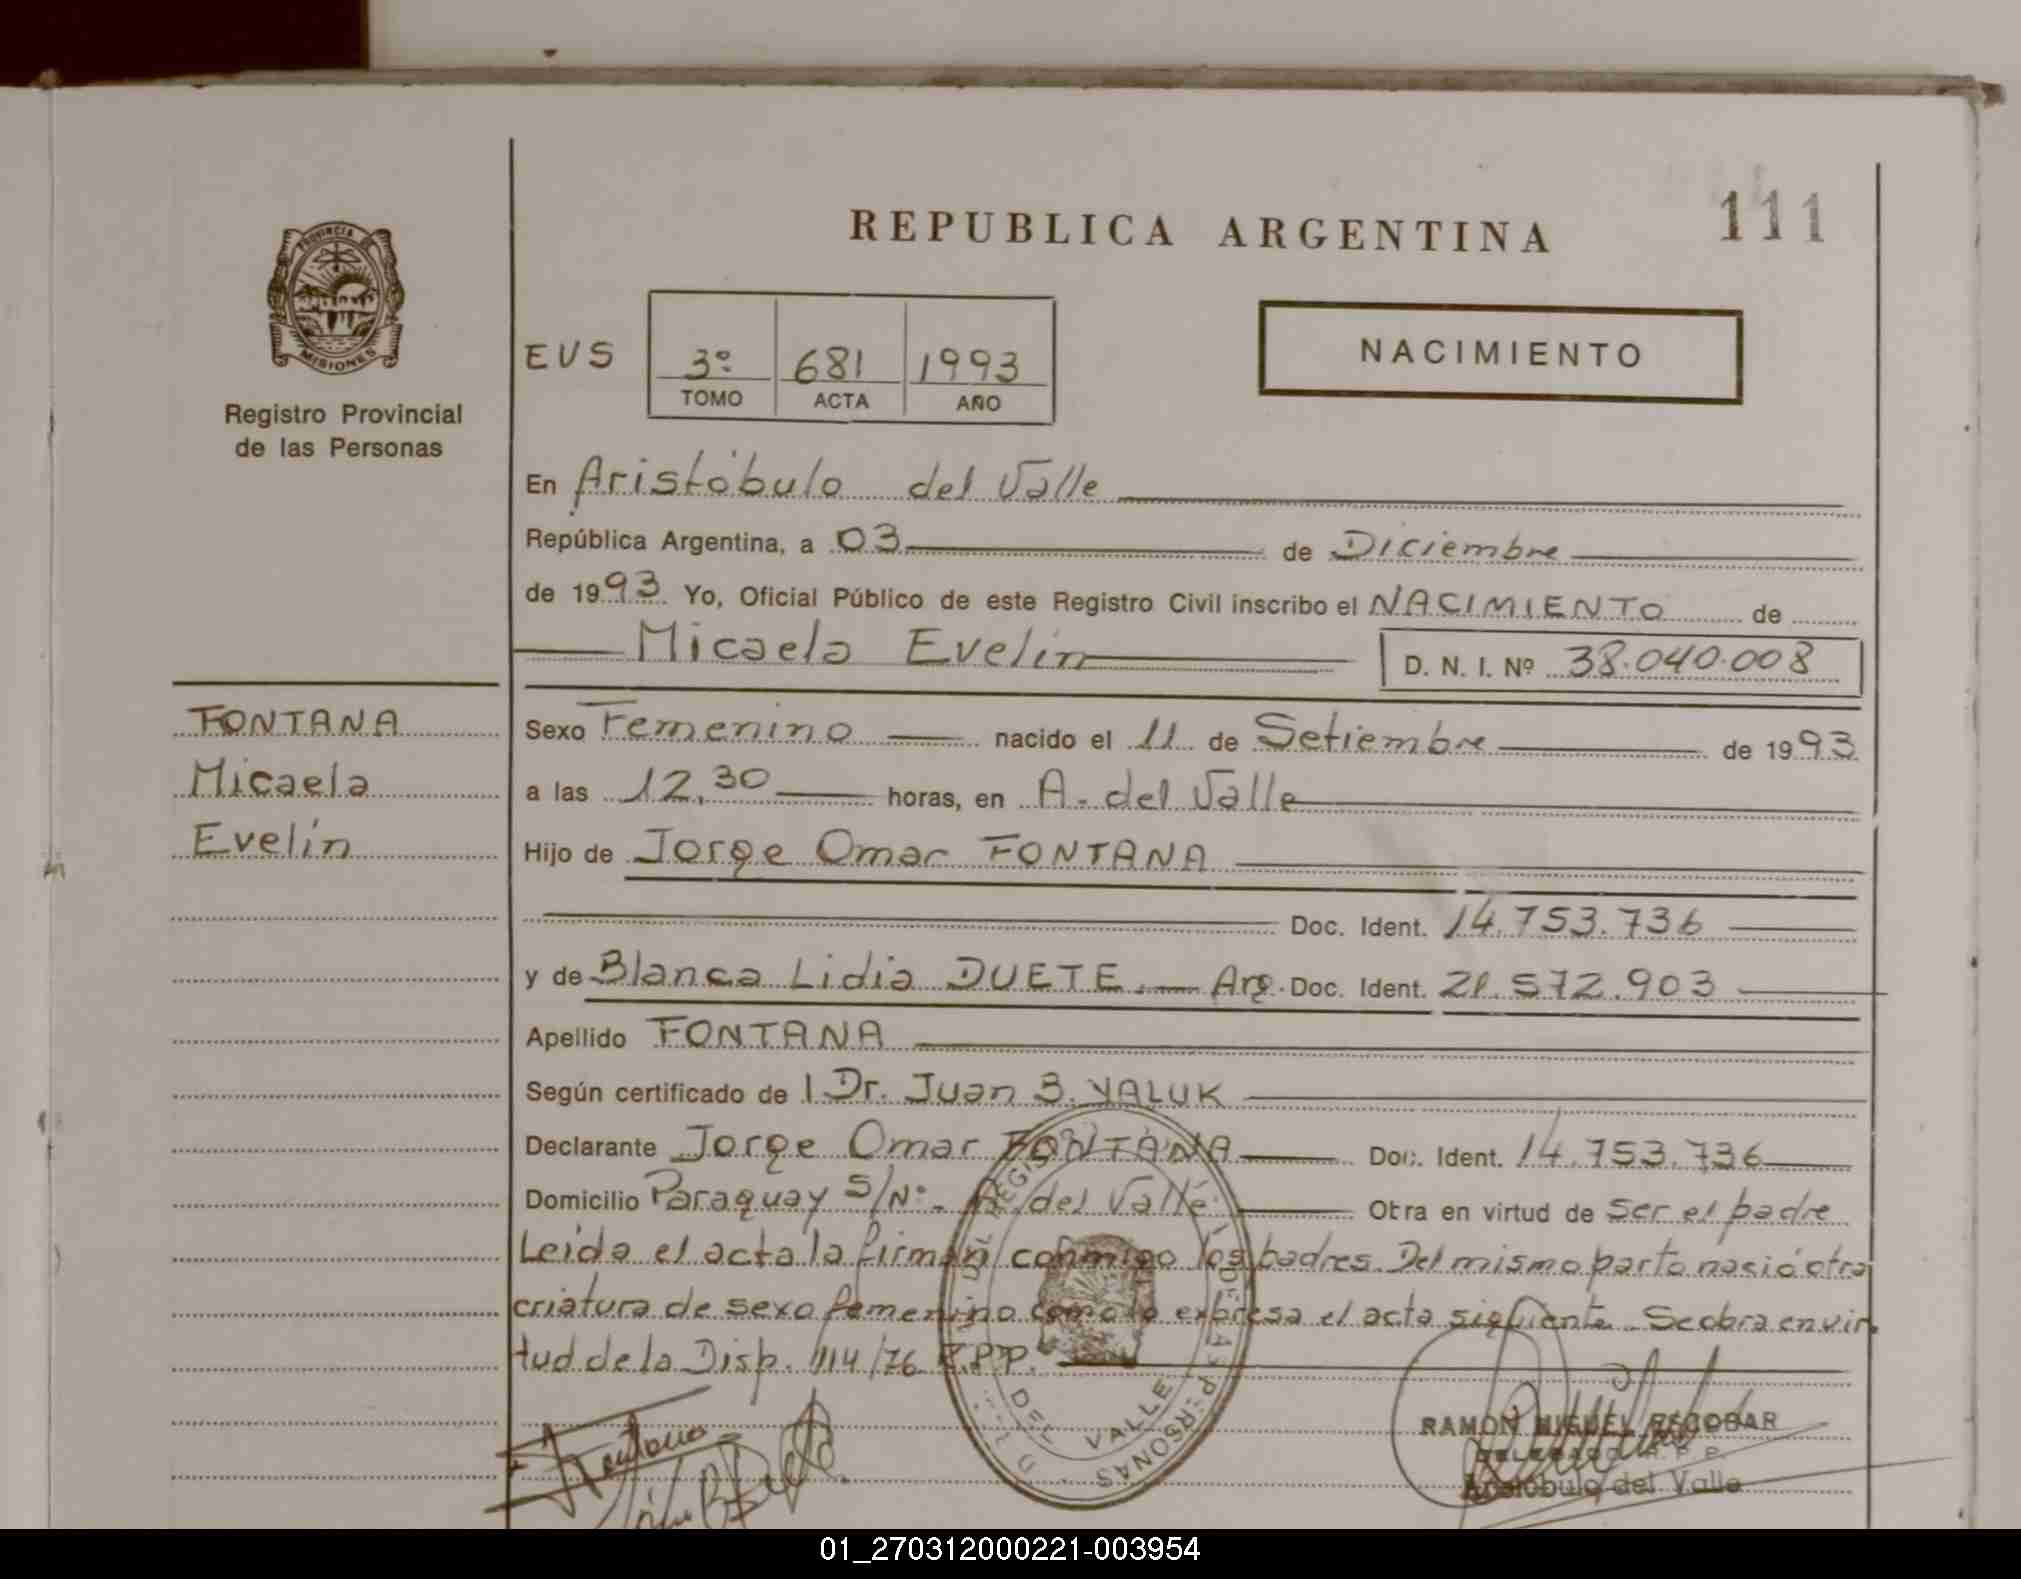 REPUBLICA ARGENTINA
111
PROVINCIA DE
MISIONES
Registro Provincial
de las Personas
EVS
3º 681 1993
TOMO ACTA AÑO
NACIMIENTO
En Aristóbulo del Valle
República Argentina, a 03 de Diciembre
de 1993. Yo, Oficial Público de este Registro Civil inscribo el NACIMIENTO de
Micaela Evelín
D. N. I. Nº 38.040.008
FONTANA
Micaela
Evelín
Sexo Femenino nacido el 11 de Setiembre de 1993
a las 12,30 horas, en A. del Valle
Hijo de Jorge Omar FONTANA
Doc. Ident. 14.753.736
y de Blanca Lidia DUETE. Arg. Doc. Ident. 21.572.903
Apellido FONTANA
Según certificado de l Dr. Juan B. YALUK
Declarante Jorge Omar FONTANA Doc. Ident. 14.753.736
Domicilio Paraguay S/Nº. A. del Valle Obra en virtud de ser el padre
Leída el acta la firman conmigo los padres. Del mismo parto nació otra
criatura de sexo femenino como lo expresa el acta siguiente. Se obra en vir
tud de la Disp. 114/76 R.P.P.
DEL VALLE
PERSONAS
RAMON MIGUEL ESCOBAR
DELEGADO R. P. P.
Aristóbulo del Valle
01_270312000221-003954